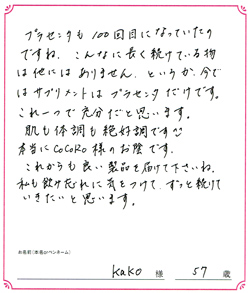 プラセンタも100回目になっていたの
ですね。こんなに長く続けている物
は他にはありません。というか、今で
はサプリメントはプラセンタだけです。
これ一つで充分だと思います。
肌も体調も絶好調です
本当にCoCoRo様のお陰です。
これからも良い製品を届けて下さいね。
私も飲み忘れに気をつけて、ずっと続けて
いきたいと思います。
お名前（本名orペンネーム）
kako 様 57 歳